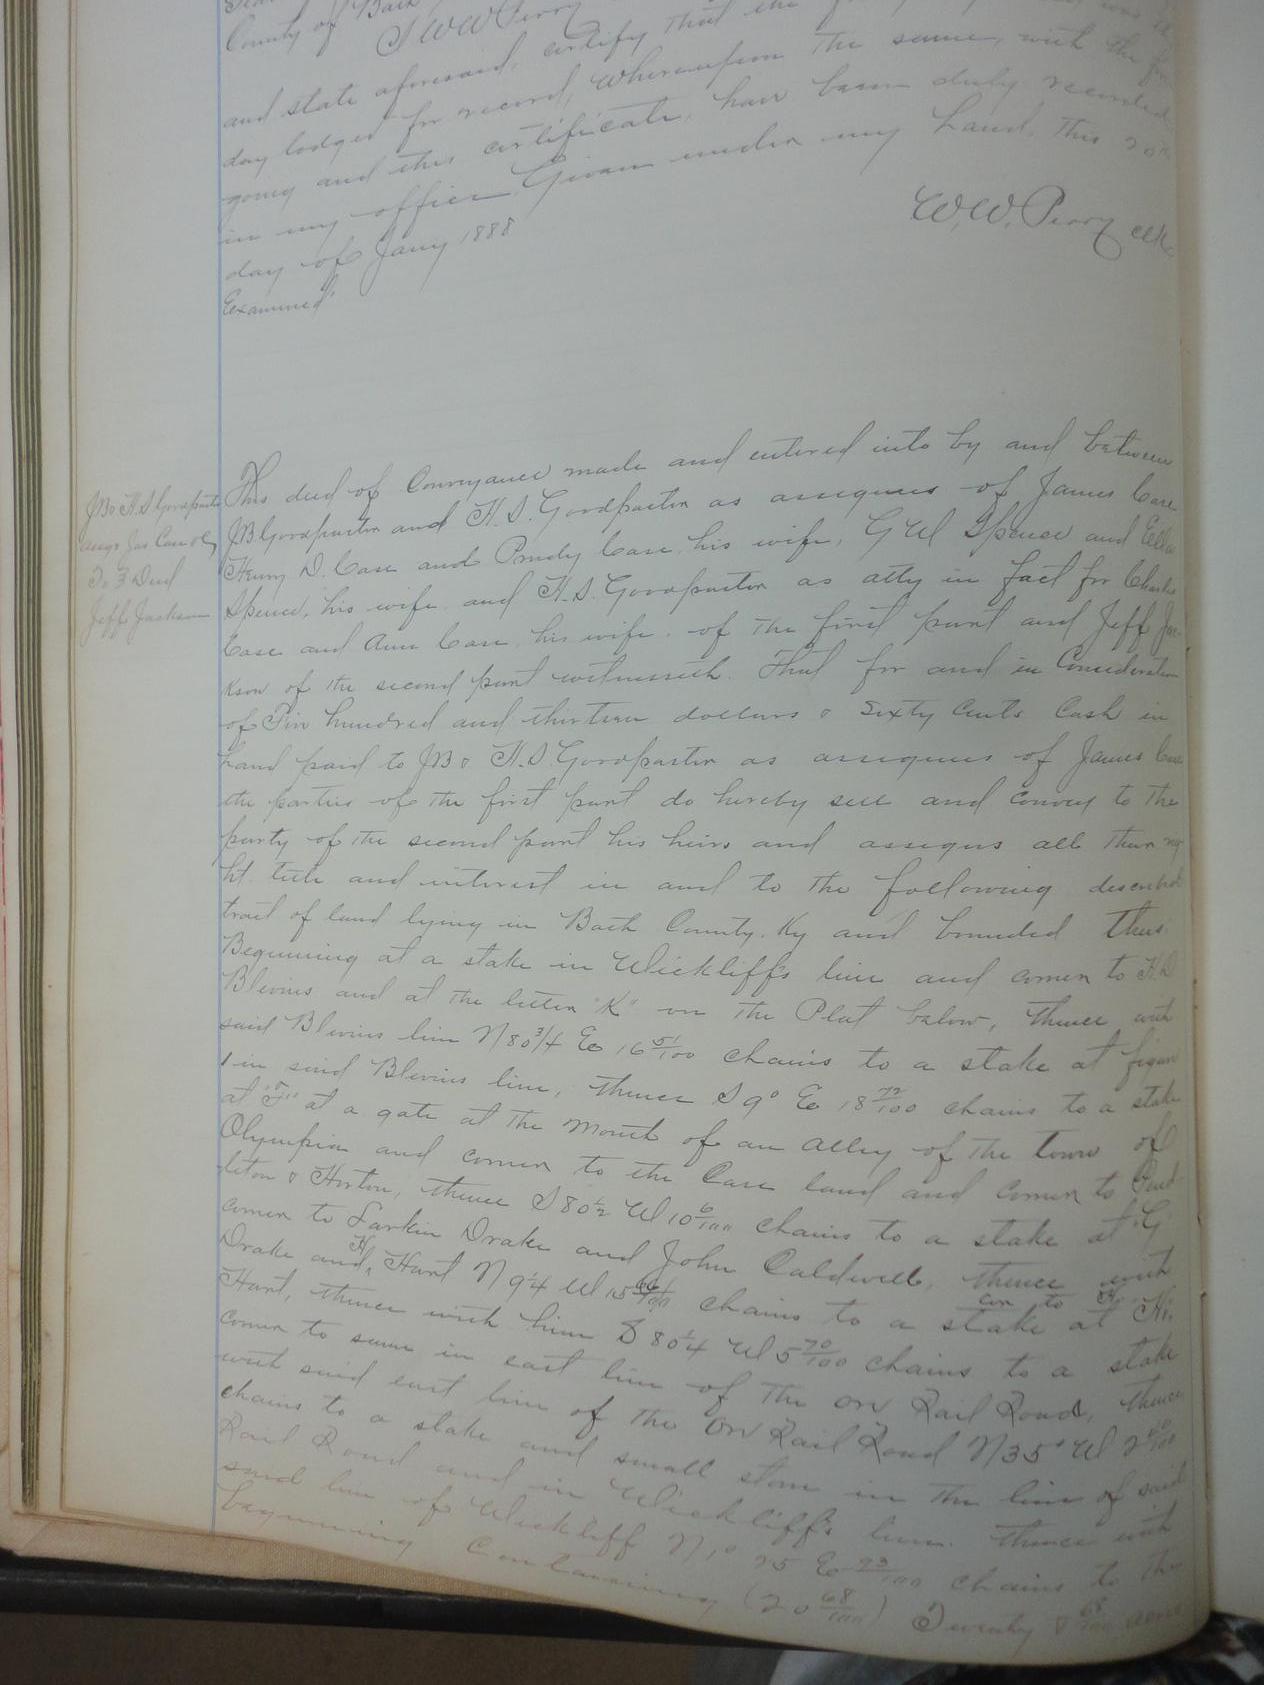 County of Bath
I W W Perry
and state aforesaid, certify that the
day lodged for record, whereupon the same, with the fore
going and this certificate, have been duly recorded
in my office Given under my hand, this 20th
day of Jany 1888
W. W. Perry clk
Examined
J B & H. S Goodpaster
asigs Jas Case &c
To } Deed
Jeff Jackson
This deed of Conveyance made and entered into by and between
J B Goodpaster and H. S. Goodpaster as assignees of James Case
Henry D. Case and Prudy Case his wife, G W Spence and Ella
Spence, his wife and H. S. Goodpaster as atty in fact for Charles
Case and Ann Case his wife of the first part and Jeff Jac-
kson of the second part witnesseth. That for and in Consideration
of Five hundred and thirteen dollars & Sixty Cents Cash in
hand paid to J B & H. S. Goodpaster as assignees of James Case
the parties of the first part do hereby sell and convey to the
party of the second part his heirs and assigns all their rig
ht title and interest in and to the following described
tract of land lying in Bath County. Ky and bounded thus
Beginning at a stake in Wickliff's line and corner to H. D
Blevins and at the letter "K" on the Plat below, thence with
said Blevins line N 80 3/4 E 16 51/100 chains to a stake at figure
1 in said Blevins line, thence S 9° E 18 72/100 chains to a stake
at "F" at a gate at the mouth of an alley of the town of
Olympia and corner to the Case land and corner to Pend
leton & Horton, thence S 80 1/2 W 10 6/100 chains to a stake at "G"
corner to Larkin Drake and John Caldwell, thence with
Drake and H. Hart N 9 1/4 W 15 chains to a stake at H. cor to
Hart, thence with him S 80 1/4 W 5 70/100 chains to a stake
corner to same in east line of the on Rail Road, thence
with said east line of the on Rail Road N 35° W 2
chains to a stake and small stone in the line of said
Rail Road and in Wickliff's line. thence with
said line of Wickliff N, 25 E chains to the
beginning Containing (20 68/100) Twenty & 68/100 acres